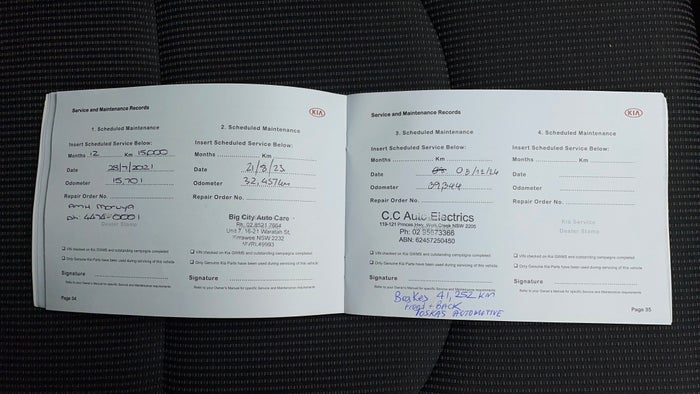 Service and Maintenance Records
KIA
1. Scheduled Maintenance
Insert Scheduled Service Below:
Months 12 Km 15,000
Date 28/7/2021
Odometer 15,701
Repair Order No.
AMH Moruya
ph: 4474-0001
Dealer Stamp
VIN checked on Kia GWMS and outstanding campaigns completed
Only Genuine Kia Parts have been used during servicing of this vehicle
Signature
Refer to your Owner's Manual for specific Service and Maintenance requirements
Page 34
2. Scheduled Maintenance
Insert Scheduled Service Below:
Months Km
Date 21/8/23
Odometer 32,457km
Repair Order No.
Big City Auto Care
Ph. 02 8521 7064
Unit 7, 16-21 Waratah St,
Kirrawee NSW 2232
VIN checked on Kia GWMS and outstanding campaigns completed
Only Genuine Kia Parts have been used during servicing of this vehicle
Signature
Refer to your Owner's Manual for specific Service and Maintenance requirements
Service and Maintenance Records
KIA
3. Scheduled Maintenance
Insert Scheduled Service Below:
Months Km
Date 03/12/24
Odometer 39,344
Repair Order No.
C.C Auto Electrics
119-121 Princes Hwy, Wolli Creek NSW 2205
Ph: 02 95673366
ABN: 62457250450
VIN checked on Kia GWMS and outstanding campaigns completed
Only Genuine Kia Parts have been used during servicing of this vehicle
Signature
Refer to your Owner's Manual for specific Service and Maintenance requirements
Brakes 41,252 km
Front + BACK
AUTOMOTIVE
4. Scheduled Maintenance
Insert Scheduled Service Below:
Months Km
Date
Odometer
Repair Order No.
Kia Service
Dealer Stamp
VIN checked on Kia GWMS and outstanding campaigns completed
Only Genuine Kia Parts have been used during servicing of this vehicle
Signature
Refer to your Owner's Manual for specific Service and Maintenance requirements
Page 35